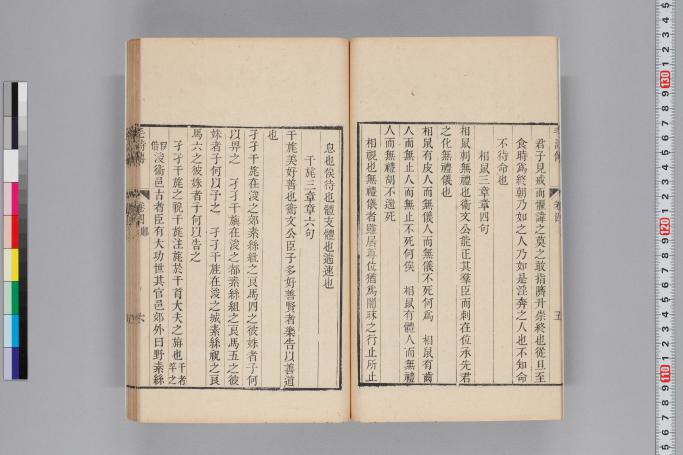 君子見戒而懼諱之莫之敢指隮升崇終也從旦至
食時爲終朝乃如之人乃如是淫奔之人也不知命
不待命也
相鼠三章章四句
相鼠刺無禮也衞文公能正其羣臣而刺在位承先君
之化無禮儀也
相鼠有皮人而無儀人而無儀不死何爲 相鼠有齒
人而無止人而無止不死何俟 相鼠有體人而無禮
人而無禮胡不遄死
相視也無禮儀者雖居尊位猶爲闇昧之行止所止
息也俟待也體支體也遄速也
干旄三章章六句
干旄美好善也衞文公臣子多好善賢者樂告以善道
也
孑孑干旄在浚之郊素絲紕之良馬四之彼姝者子何
以畀之 孑孑干旟在浚之都素絲組之良馬五之彼
姝者子何以予之 孑孑干旌在浚之城素絲祝之良
馬六之彼姝者子何以告之
孑孑干旄之皃干旄注旄於干首大夫之旃也
浚衞邑古者臣有大功世其官邑郊外曰野素絲
毛詩傳
卷四
六
五